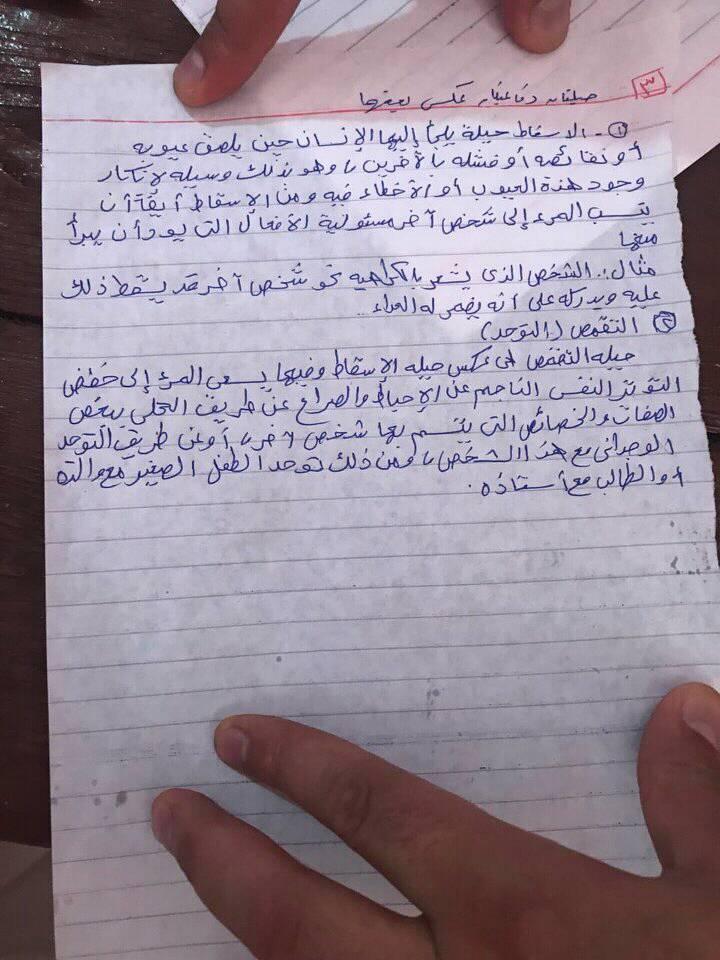 ٣
حيلتان دفاعيتان عكس بعضها
① - الاسقاط حيلة يلجأ إليها الإنسان حين يلصق عيوبه
أو نقائصه أو فشله بالآخرين ، وهو بذلك وسيلة لإنكار
وجود هذة العيوب أو الأخطاء فيه ومن الإسقاط أيضًا أن
ينسب المرء إلى شخص آخر مسئولية الأفعال التى يود أن يبرأ
منها
مثال :. الشخص الذى يشعر بالكراهيه نحو شخص آخر قد يسقط ذلك
عليه ويدركه على أنه يضمر له العداء ..
② التقمص (التوحد)
حيله التقمص هى عكس حيله الإسقاط وفيها يسعى المرء إلى خفض
التوتر النفسى الناجم عن الإحباط والصراع عن طريق التحلى ببعض
الصفات والخصائص التى يتسم بها شخص آخر ، أو عن طريق التوحد
الوجدانى مع هذا الشخص ، ومن ذلك توحد الطفل الصغير مع والده
أو الطالب مع أستاذه .